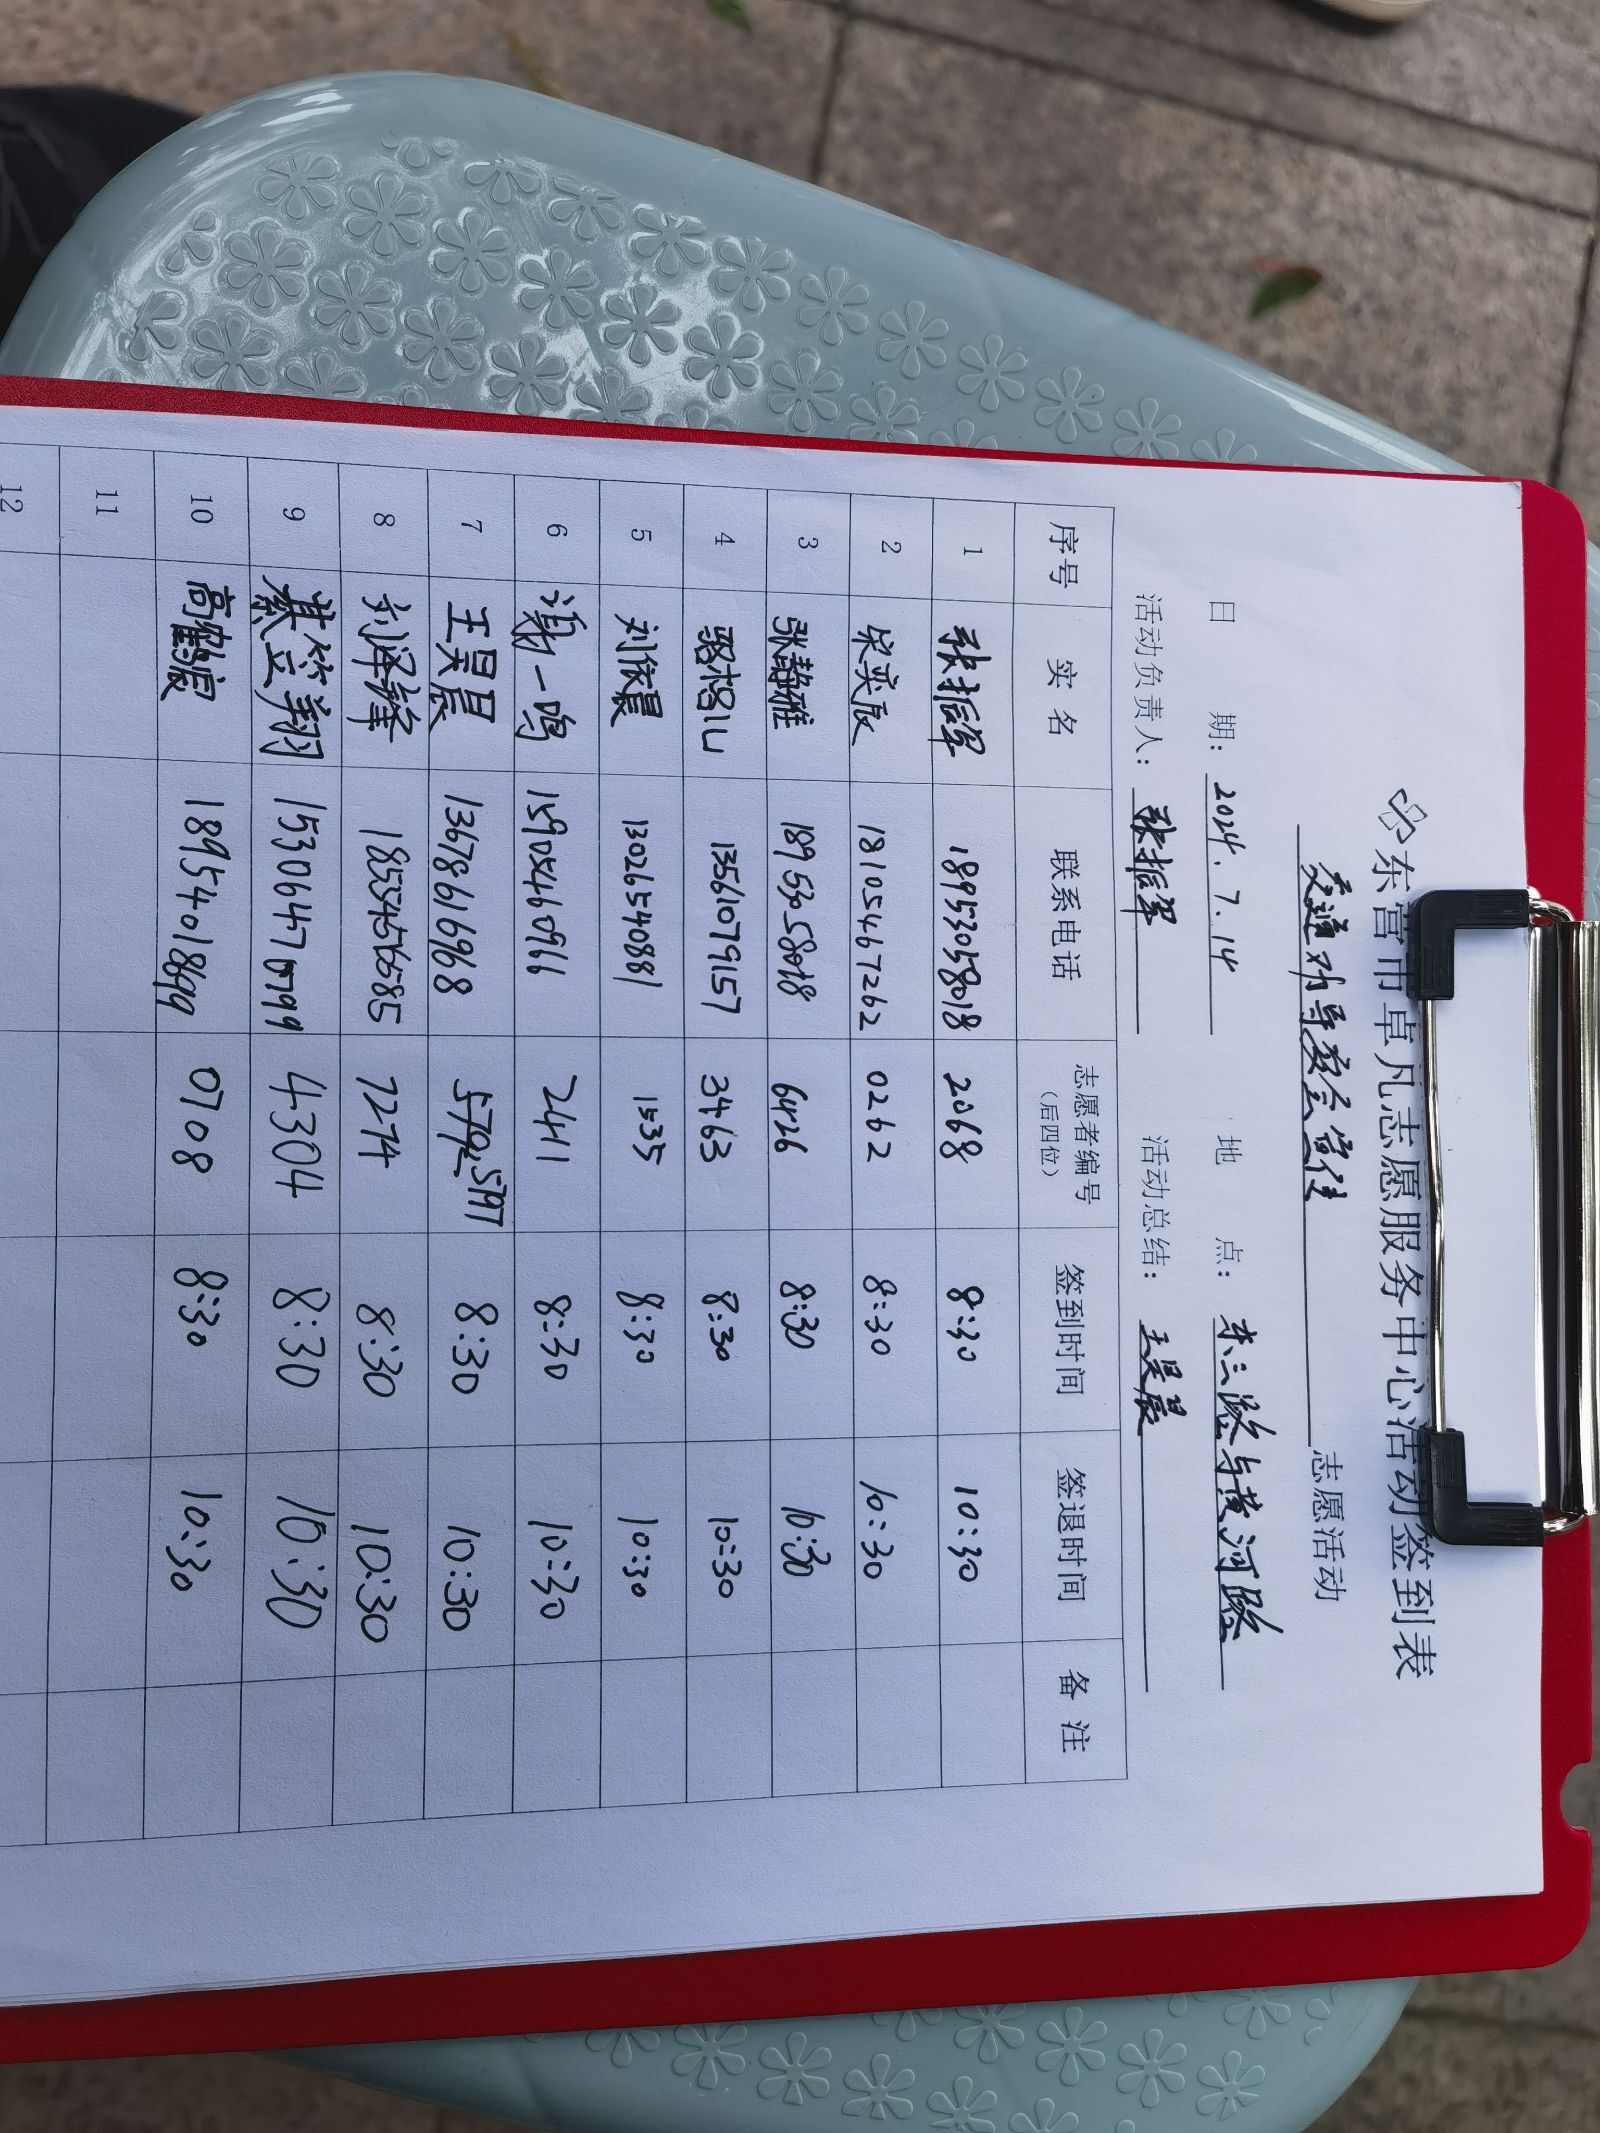 东营市卓凡志愿服务中心活动签到表
交通劝导 志愿活动
日 期： 2024.7.14 地 点： 东三路与黄河路
活动负责人： 张振军 活动总结： 王昊晨
序号 实 名 联系电话 志愿者编号（后四位） 签到时间 签退时间 备 注
1 张振军 18953058018 2068 8:30 10:30
2 宋奕辰 18105467262 0262 8:30 10:30
3 张静雅 18953058018 6426 8:30 10:30
4 13561079157 3463 8:30 10:30
5 刘依晨 13026540881 1535 8:30 10:30
6 谢一鸣 15905460966 2411 8:30 10:30
7 王昊晨 13678616968 5797 8:30 10:30
8 刘泽锋 18554566585 7274 8:30 10:30
9 綦笠翔 15306470799 4304 8:30 10:30
10 18954018699 0708 8:30 10:30
11
12